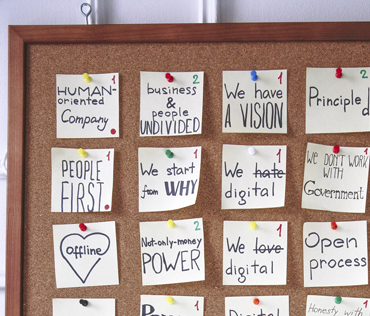 1
HUMAN-
oriented
Company
2
business
&
people
UNDIVIDED
1
We have
A VISION
2
Principle
1
PEOPLE
FIRST
1
We start
from WHY
1
We hate
digital
1
We DON'T WORK
WITH
Government
Offline
2
Not-only-money
POWER
We love
digital
Open
process
1
Digital
1
Honesty with